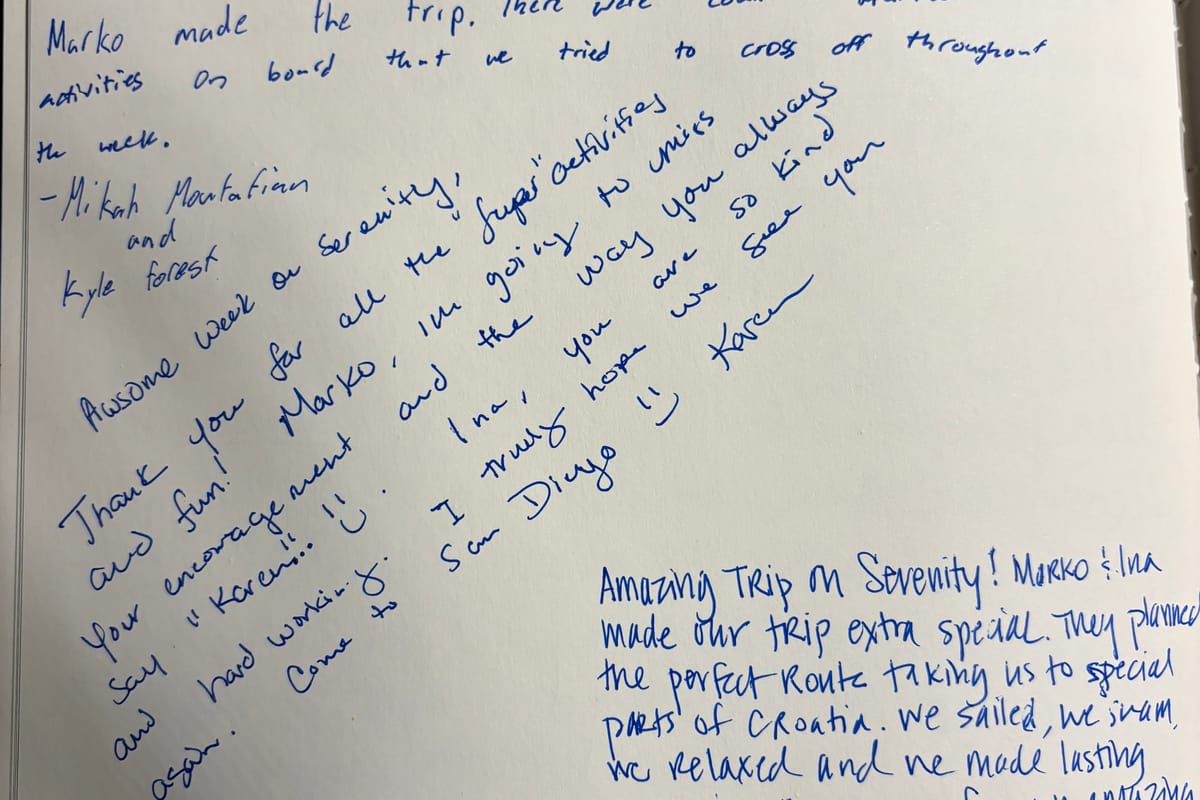 Marko made the trip. There were
activities on board that we tried to cross off throughout
the week.
- Mikah
and
Kyle Forest
Awsome week on Serenity,
Thank you for all the "super" activities
and fun! Marko, im going to miss
your encouragement and the way you always
say "Karen"... :) . Ina, you are so kind
and hard working. I truly hope we see you
again. Come to San Diego :) Karen
Amazing Trip on Serenity! Marko & Ina
made our trip extra special. They planned
the perfect Route taking us to special
parts of Croatia. We sailed, we swam,
we relaxed and we made lasting